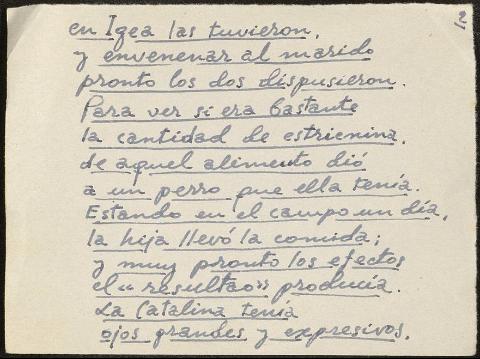 2
en Igea las tuvieron,
y envenenar al marido
pronto los dos dispusieron.
Para ver si era bastante
la cantidad de estricnina,
de aquel alimento dió
a un perro que ella tenía.
Estando en el campo un día,
la hija llevó la comida;
y muy pronto los efectos
el «resultao» producía.
La Catalina tenía
ojos grandes y expresivos,